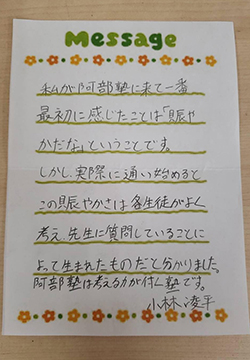 Message
私が阿部塾に来て一番
最初に感じたことは「賑や
かだな」ということです。
しかし、実際に通い始めると
この賑やかさは各生徒がよく
考え、先生に質問していることに
よって生まれたものだと分かりました。
阿部塾は考える力が付く塾です。
小林凌平